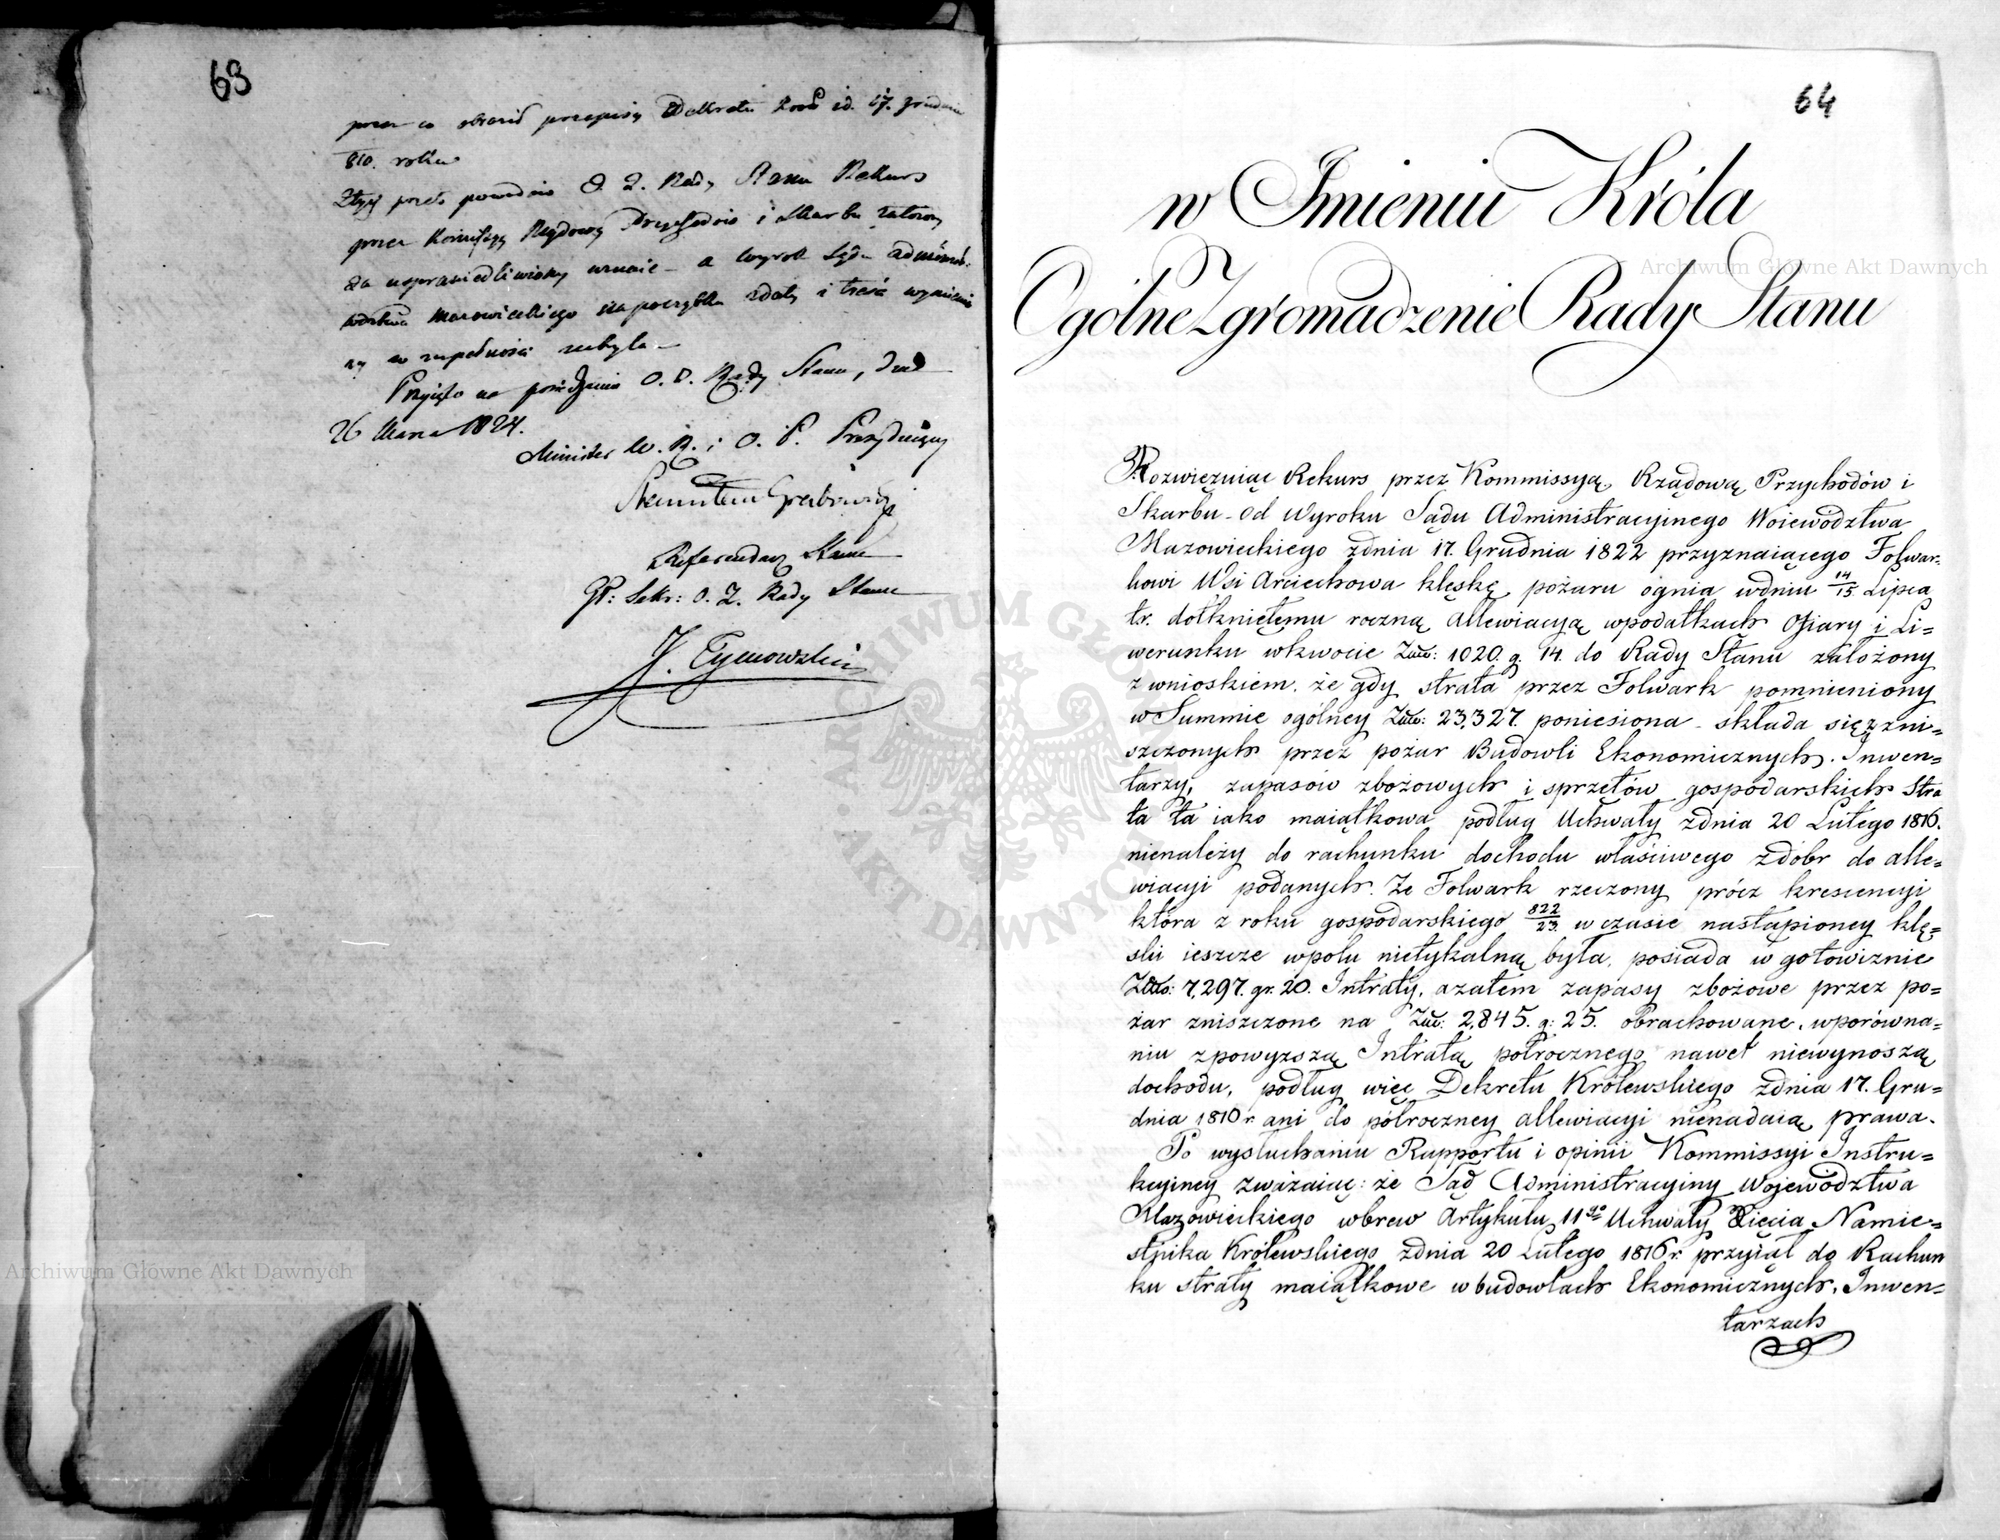 63
przez co obraził przepisy Dekretu Król. z d. 17. Grudnia
810. roku
przez Kommissyą Rządową Przychodów i Skarbu założony
za usprawiedliwiony uznaie – a wyrok Sądu Administ.
Mazowieckiego na początku z daty i treści wymienio
ny w zupełności uchyla –
Przyjęto na posiedzeniu O. Z. Rady Stanu, dnia
26 Marca 1824.
Minister W. R. i O. P. Prezyduiący
Stanisław Grabowski
Referendarz Stanu
Sekr: O. Z. Rady Stanu
J. Tymowski
64
w Imieniu Króla
Ogólne Zgromadzenie Rady Stanu
Rozwięzuiąc Rekurs przez Kommissyą Rządową Przychodów i
Skarbu – od Wyroku Sądu Administracyinego Woiewództwa
Mazowieckiego zdnia 17. Grudnia 1822 przyznaiącego Folwar-
kowi Wsi Arciechowa klęskę pożaru ognia wdniu 14/15 Lipca
tr. dotkniętemu roczną allewiacyą wpodatkach Ofiary i Li=
werunku wkwocie Złtw: 1020. g. 14. do Rady Stanu założony
z wnioskiem. że gdy strata przez Folwark pomnieniony
w Summie ogólney Złtw: 23,327. poniesiona – składa się z zni=
szczonych przez pożar Budowli Ekonomicznych. Inwen=
tarzy, zapasów zbożowych i sprzętów gospodarskich Stra
ta ta iako maiątkowa podług Uchwały zdnia 20 Lutego 1816.
nienależy do rachunku dochodu właściwego zdóbr do alle=
wiacyi podanych. Że Folwark rzeczony prócz krescencyi
która z roku gospodarskiego 822/23. w czasie nastąpioney klę=
ski ieszcze wpolu nietykalną była, posiada w gotowiznie
Złtw: 7,297. gr. 20. Intraty, azatem zapasy zbożowe przez po=
żar zniszczone na Złw: 2,845. g: 25. obrachowane, wporówna=
niu zpowyższą Intratą półrocznego nawet niewynoszą
dochodu, podług więc Dekretu Królewskiego zdnia 17. Gru=
dnia 1810 r. ani do półroczney allewiacyi nienadaią prawa.
Po wysłuchaniu Rapportu i opinii Kommissyi Instru=
kcyiney zważaiąc: że Sąd Administracyiny Województwa
Mazowieckiego wbrew Artykułu 11go Uchwały Xięcia Namie=
stnika Królewskiego zdnia 20 Lutego 1816 r. przyiął do Rachun
ku straty maiątkowe w budowlach Ekonomicznych, Inwen=
tarzach
Archiwum Główne Akt Dawnych
Archiwum Główne Akt Dawnych
ARCHIWUM GŁÓWNE AKT DAWNYCH